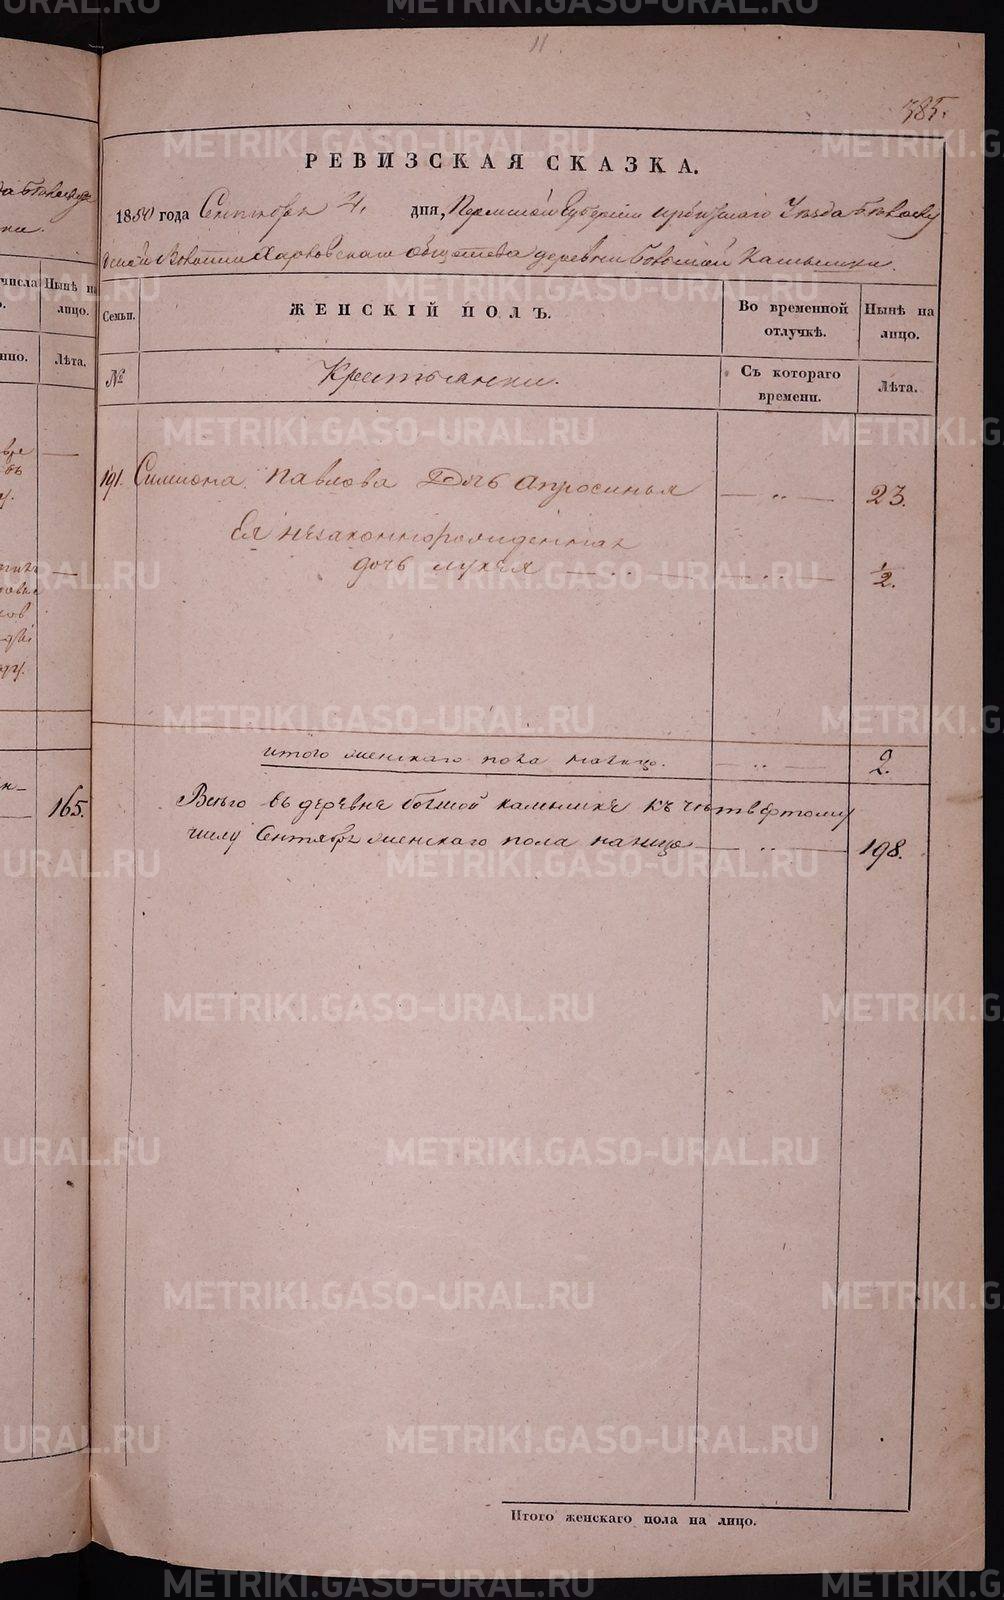 11.
385.
РЕВИЗСКАЯ СКАЗКА.
1850 года Сентября 4. дня, Пермской Губернии Ирбитскаго Уезда Белослу
дской Волости Харловскаго общества деревни Большой Камышки.
Семьи. ЖЕНСКІЙ ПОЛЪ. Во временной отлучкѣ. Нынѣ на лицо.
№ Крестьянки. Съ котораго времени. Лѣта.
191. Симиона Павлова Дочь Апросинья — „ — 23.
Ея незаконнорожденная
дочь Лукея — „ — 1/2.
итого женскаго пола налицо. — „ — 2.
Всего въ деревне большой камышке къ четвертому
числу Сентября женскаго пола налицо — „ — 198.
Итого женскаго пола на лицо.
числа
Нынѣ на
лицо.
Лѣта.
165.
METRIKI.GASO-URAL.RU